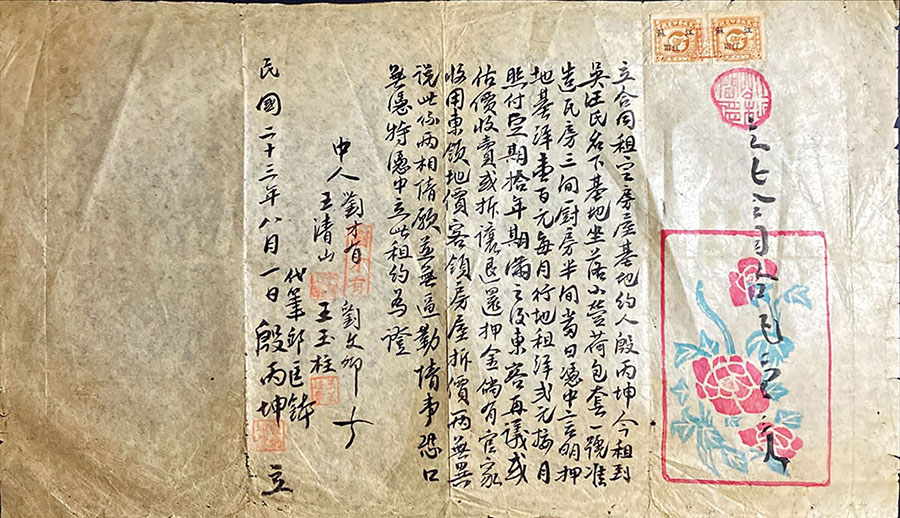 江蘇
江蘇
立合同租定房屋基地約人殷丙坤今租到
吳汪氏名下基地坐落小營荷包套一號准
造瓦房三间厨房半间當日憑中言明押
地基洋壹百元每月行地租洋弍元按月
照付定期拾年期滿之後東客再議或
估價收賣或拆讓退還押金倘有官家
收用東領地價客領房屋拆價兩無異
說此係兩相情願並無逼勒情事恐口
無憑特憑中立此租約為證
中人 劉才有 劉文卿 十
王清山 王玉柱
代筆 邱匡
民國二十三年八月一日 殷丙坤 立